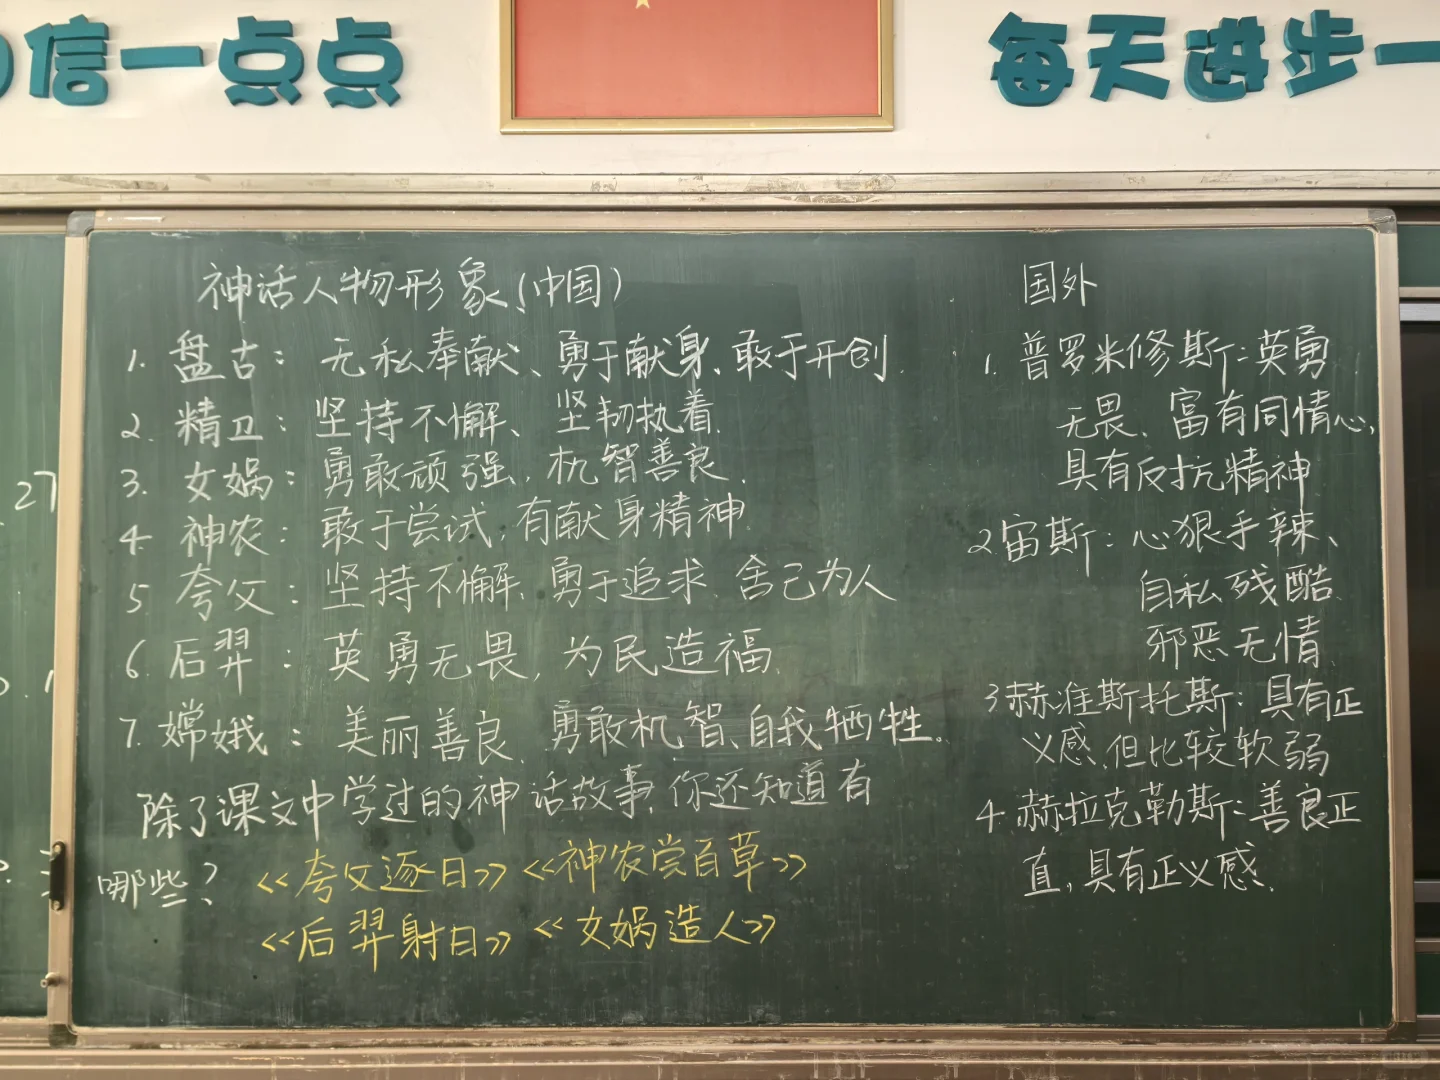 信一点点
每天进步一
神话人物形象(中国)
1. 盘古：无私奉献、勇于献身、敢于开创.
2. 精卫：坚持不懈、坚韧执着.
3. 女娲：勇敢顽强，机智善良.
4. 神农：敢于尝试，有献身精神.
5 夸父：坚持不懈、勇于追求、舍己为人
6. 后羿：英勇无畏，为民造福.
7. 嫦娥：美丽善良、勇敢机智、自我牺牲。
除了课文中学过的神话故事，你还知道有
哪些？《夸父逐日》《神农尝百草》
《后羿射日》《女娲造人》
国外
1. 普罗米修斯：英勇
无畏、富有同情心，
具有反抗精神
2.宙斯：心狠手辣、
自私残酷.
邪恶无情.
3赫准斯托斯：具有正
义感，但比较软弱
4.赫拉克勒斯：善良正
直，具有正义感.
27